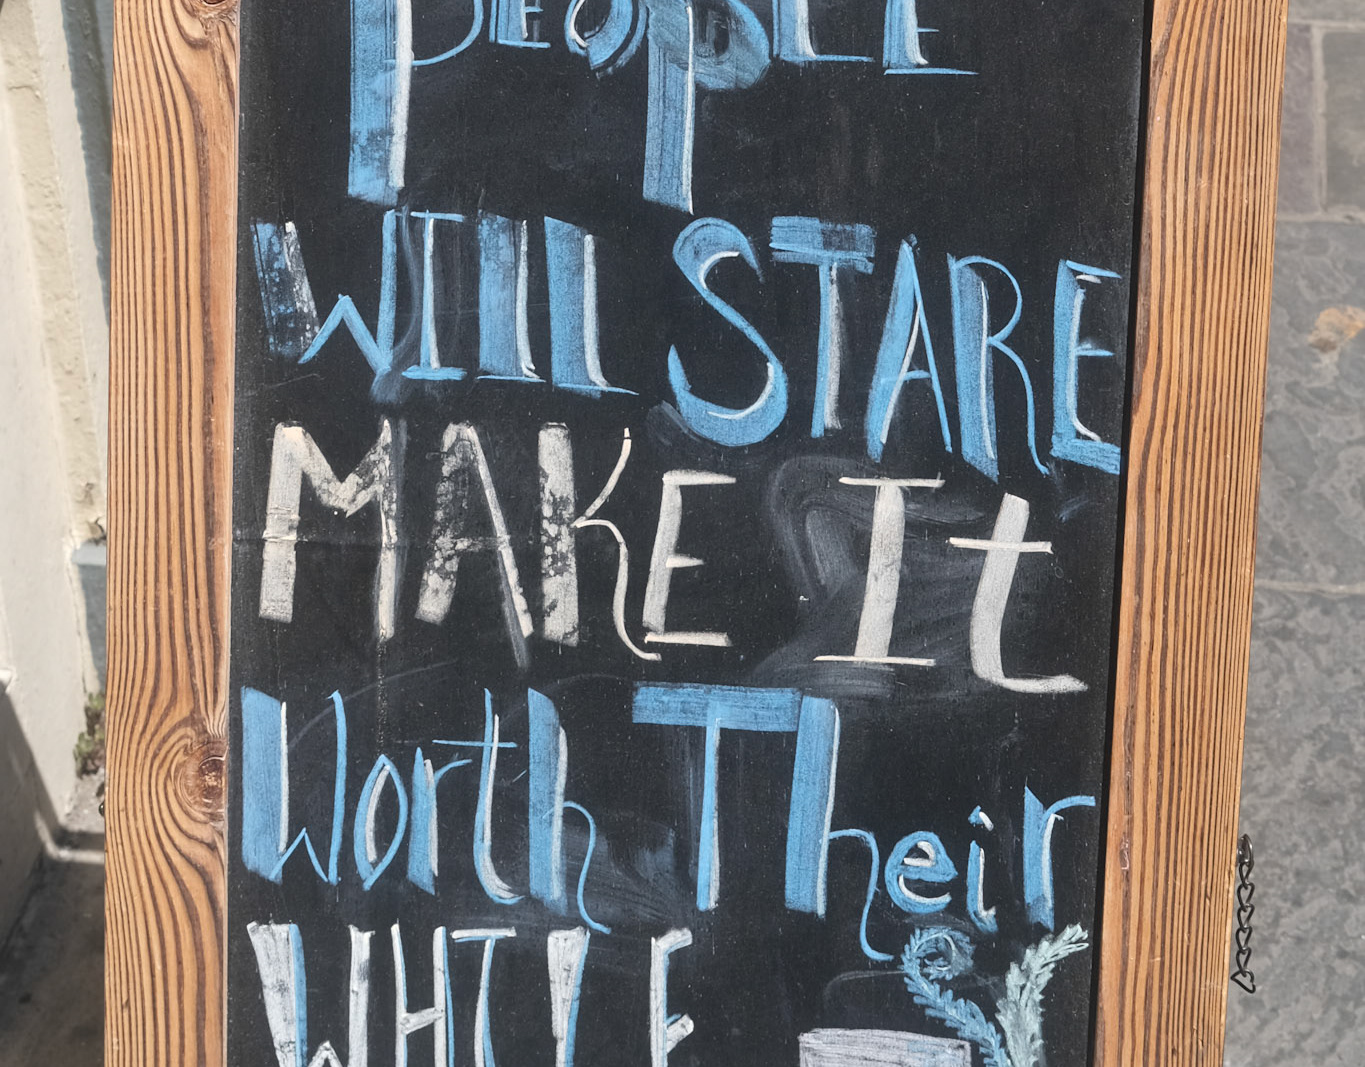 peopLE
WIll STARE
MAKE It
Worth Their
WHILE